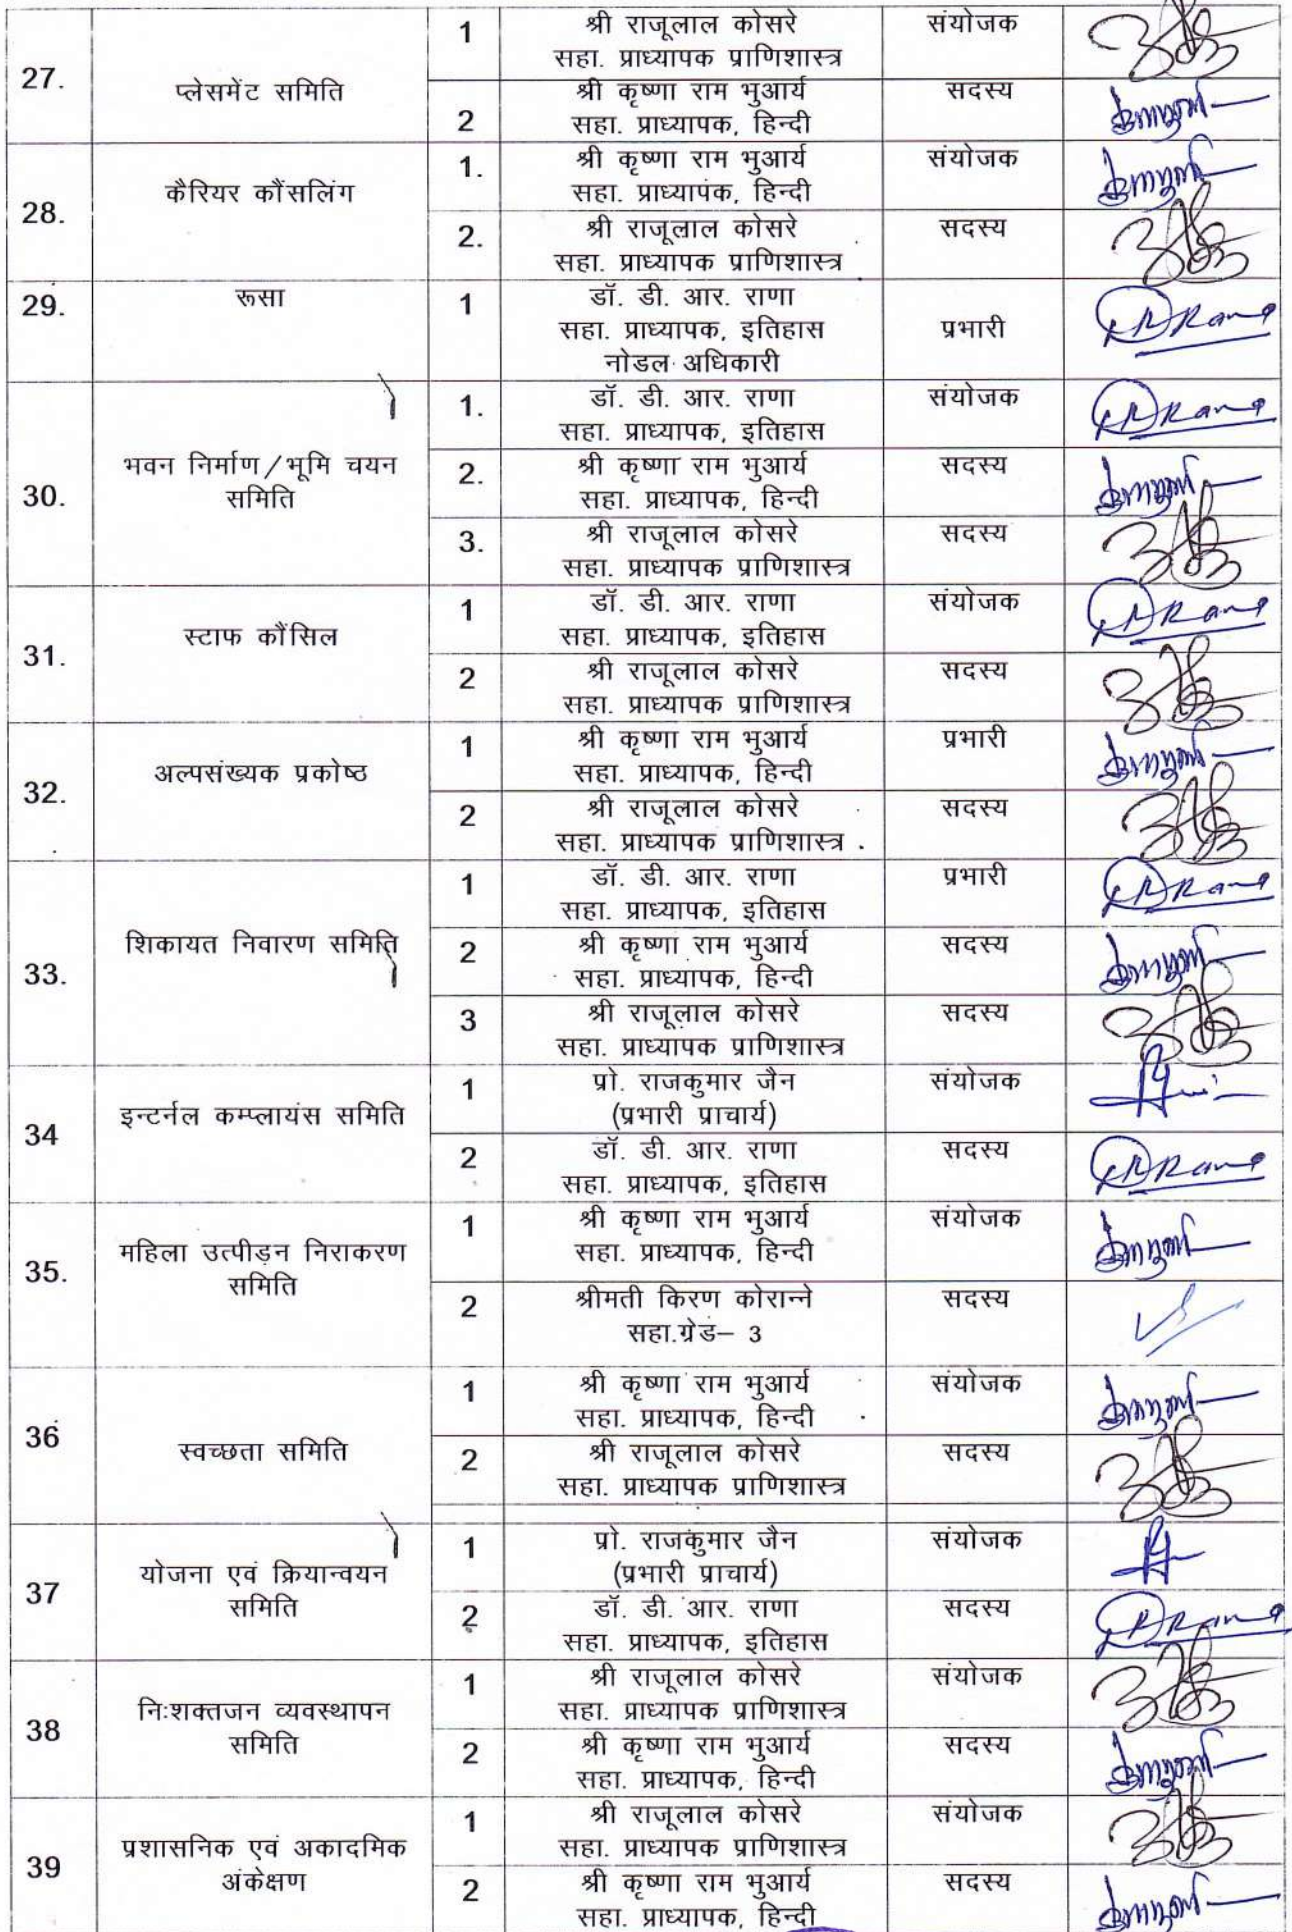 27.
प्लेसमेंट समिति
1
श्री राजूलाल कोसरे
सहा. प्राध्यापक प्राणिशास्त्र
संयोजक
2
श्री कृष्णा राम भुआर्य
सहा. प्राध्यापक, हिन्दी
सदस्य
28.
कैरियर कौंसलिंग
1.
श्री कृष्णा राम भुआर्य
सहा. प्राध्यापक, हिन्दी
संयोजक
2.
श्री राजूलाल कोसरे
सहा. प्राध्यापक प्राणिशास्त्र
सदस्य
29.
रूसा
1
डॉ. डी. आर. राणा
सहा. प्राध्यापक, इतिहास
नोडल अधिकारी
प्रभारी
30.
भवन निर्माण/भूमि चयन
समिति
1.
डॉ. डी. आर. राणा
सहा. प्राध्यापक, इतिहास
संयोजक
2.
श्री कृष्णा राम भुआर्य
सहा. प्राध्यापक, हिन्दी
सदस्य
3.
श्री राजूलाल कोसरे
सहा. प्राध्यापक प्राणिशास्त्र
सदस्य
31.
स्टाफ कौंसिल
1
डॉ. डी. आर. राणा
सहा. प्राध्यापक, इतिहास
संयोजक
2
श्री राजूलाल कोसरे
सहा. प्राध्यापक प्राणिशास्त्र
सदस्य
32.
अल्पसंख्यक प्रकोष्ठ
1
श्री कृष्णा राम भुआर्य
सहा. प्राध्यापक, हिन्दी
प्रभारी
2
श्री राजूलाल कोसरे
सहा. प्राध्यापक प्राणिशास्त्र .
सदस्य
33.
शिकायत निवारण समिति
1
डॉ. डी. आर. राणा
सहा. प्राध्यापक, इतिहास
प्रभारी
2
श्री कृष्णा राम भुआर्य
सहा. प्राध्यापक, हिन्दी
सदस्य
3
श्री राजूलाल कोसरे
सहा. प्राध्यापक प्राणिशास्त्र
सदस्य
34
इन्टर्नल कम्प्लायंस समिति
1
प्रो. राजकुमार जैन
(प्रभारी प्राचार्य)
संयोजक
2
डॉ. डी. आर. राणा
सहा. प्राध्यापक, इतिहास
सदस्य
35.
महिला उत्पीड़न निराकरण
समिति
1
श्री कृष्णा राम भुआर्य
सहा. प्राध्यापक, हिन्दी
संयोजक
2
श्रीमती किरण कोरान्ने
सहा.ग्रेड– 3
सदस्य
36
स्वच्छता समिति
1
श्री कृष्णा राम भुआर्य
सहा. प्राध्यापक, हिन्दी
संयोजक
2
श्री राजूलाल कोसरे
सहा. प्राध्यापक प्राणिशास्त्र
सदस्य
37
योजना एवं क्रियान्वयन
समिति
1
प्रो. राजकुमार जैन
(प्रभारी प्राचार्य)
संयोजक
2
डॉ. डी. आर. राणा
सहा. प्राध्यापक, इतिहास
सदस्य
38
निःशक्तजन व्यवस्थापन
समिति
1
श्री राजूलाल कोसरे
सहा. प्राध्यापक प्राणिशास्त्र
संयोजक
2
श्री कृष्णा राम भुआर्य
सहा. प्राध्यापक, हिन्दी
सदस्य
39
प्रशासनिक एवं अकादमिक
अंकेक्षण
1
श्री राजूलाल कोसरे
सहा. प्राध्यापक प्राणिशास्त्र
संयोजक
2
श्री कृष्णा राम भुआर्य
सहा. प्राध्यापक, हिन्दी
सदस्य